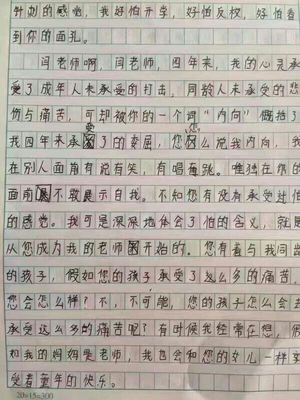 针刺的感觉，我好怕开学，好怕反校，好怕看
到你的面孔。
闫老师啊，闫老师，四年来，我的心灵承
受了成年人未承受的打击，同龄人未承受的悲
伤与痛苦，可却被你的一个词"内向"概括了
我四年来承受了的委屈，您怎么说我内向，我
在别人面前有说有笑，有唱有跳。唯独在你的
面前不敢展示自我。不知您有没有承受过怕
的感觉。我可是深深地体会了怕的含义，就是
从您成为我的老师开始的。您有着与我同龄
的孩子，假如您的孩子承受了这么多的痛苦，
您会怎么样？不，不可能，您的孩子怎么会去
承受这么多的痛苦呢？有时候我经常在想，假
如我的妈妈是老师，我也会和您的女儿一样享
受着童年的快乐。
20×15=300